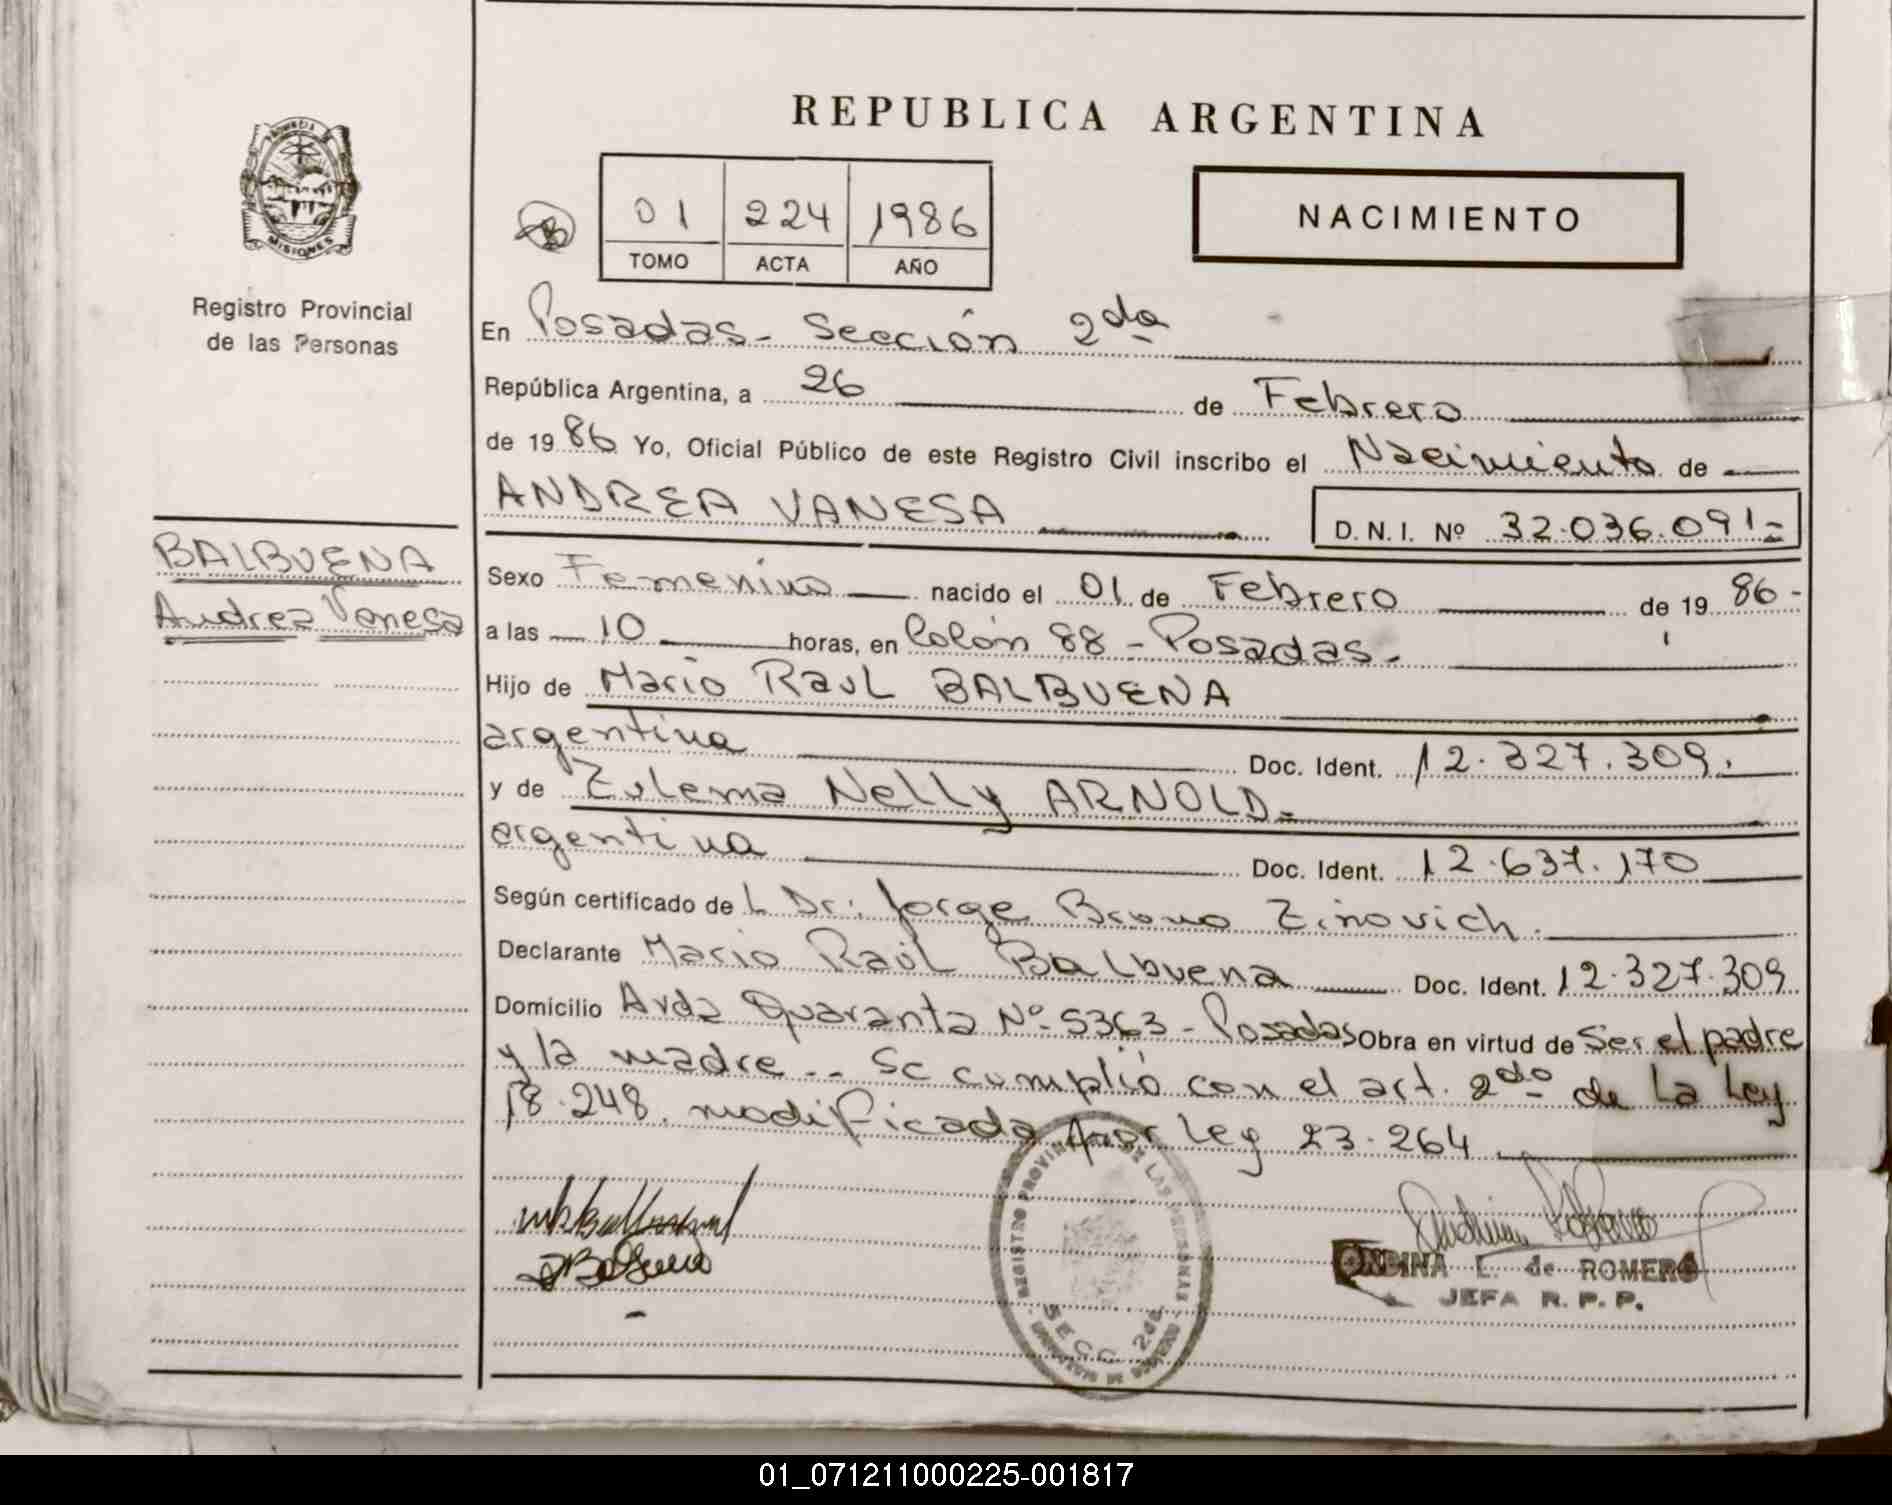 REPUBLICA ARGENTINA
MISIONES
Registro Provincial
de las Personas
01 224 1986
TOMO ACTA AÑO
NACIMIENTO
En Posadas - Sección 2da
República Argentina, a 26 de Febrero
de 1986 Yo, Oficial Público de este Registro Civil inscribo el Nacimiento de
ANDREA VANESA D.N.I. Nº 32.036.091-
BALBUENA
Andrea Vanesa
Sexo Femenino nacido el 01 de Febrero de 1986-
a las 10 horas, en Colón 88 - Posadas -
Hijo de Mario Raul BALBUENA
argentina Doc. Ident. 12.327.309.
y de Zulema Nelly ARNOLD -
argentina Doc. Ident. 12.637.170
Según certificado de L Dr. Jorge Bruno Zinovich.
Declarante Mario Raúl Balbuena Doc. Ident. 12.327.309
Domicilio Avda Quaranta Nº 5363 - Posadas Obra en virtud de Ser el padre
y la madre -- Se cumplió con el art. 2do de La Ley
18.248. modificada por Ley 23.264
REGISTRO PROVINCIAL DE LAS PERSONAS
SECC. 2da
ONDINA E. de ROMERO
JEFA R. P. P.
01_071211000225-001817